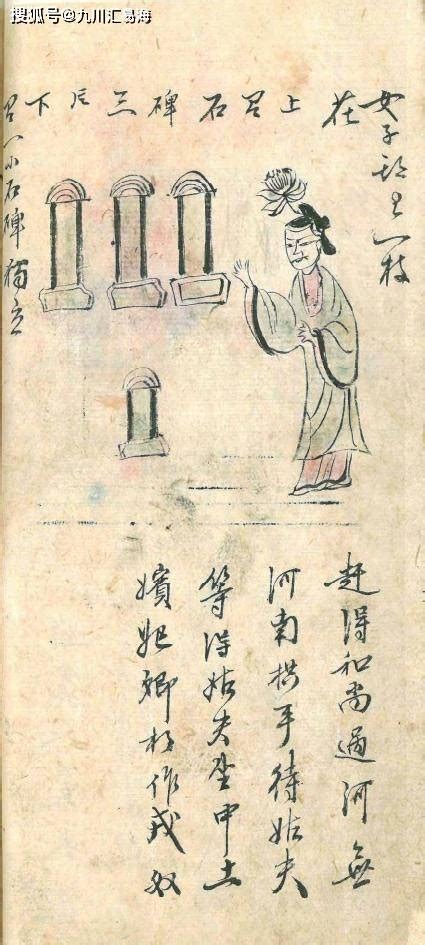 搜狐号@九川汇易海
女子頭上一枝
花上呂石碑三片下
呂一小石碑獨立
趕得和尚過河無
河南拱手待姑夫
等得姑夫坐中土
嬪妃卿相作戎奴